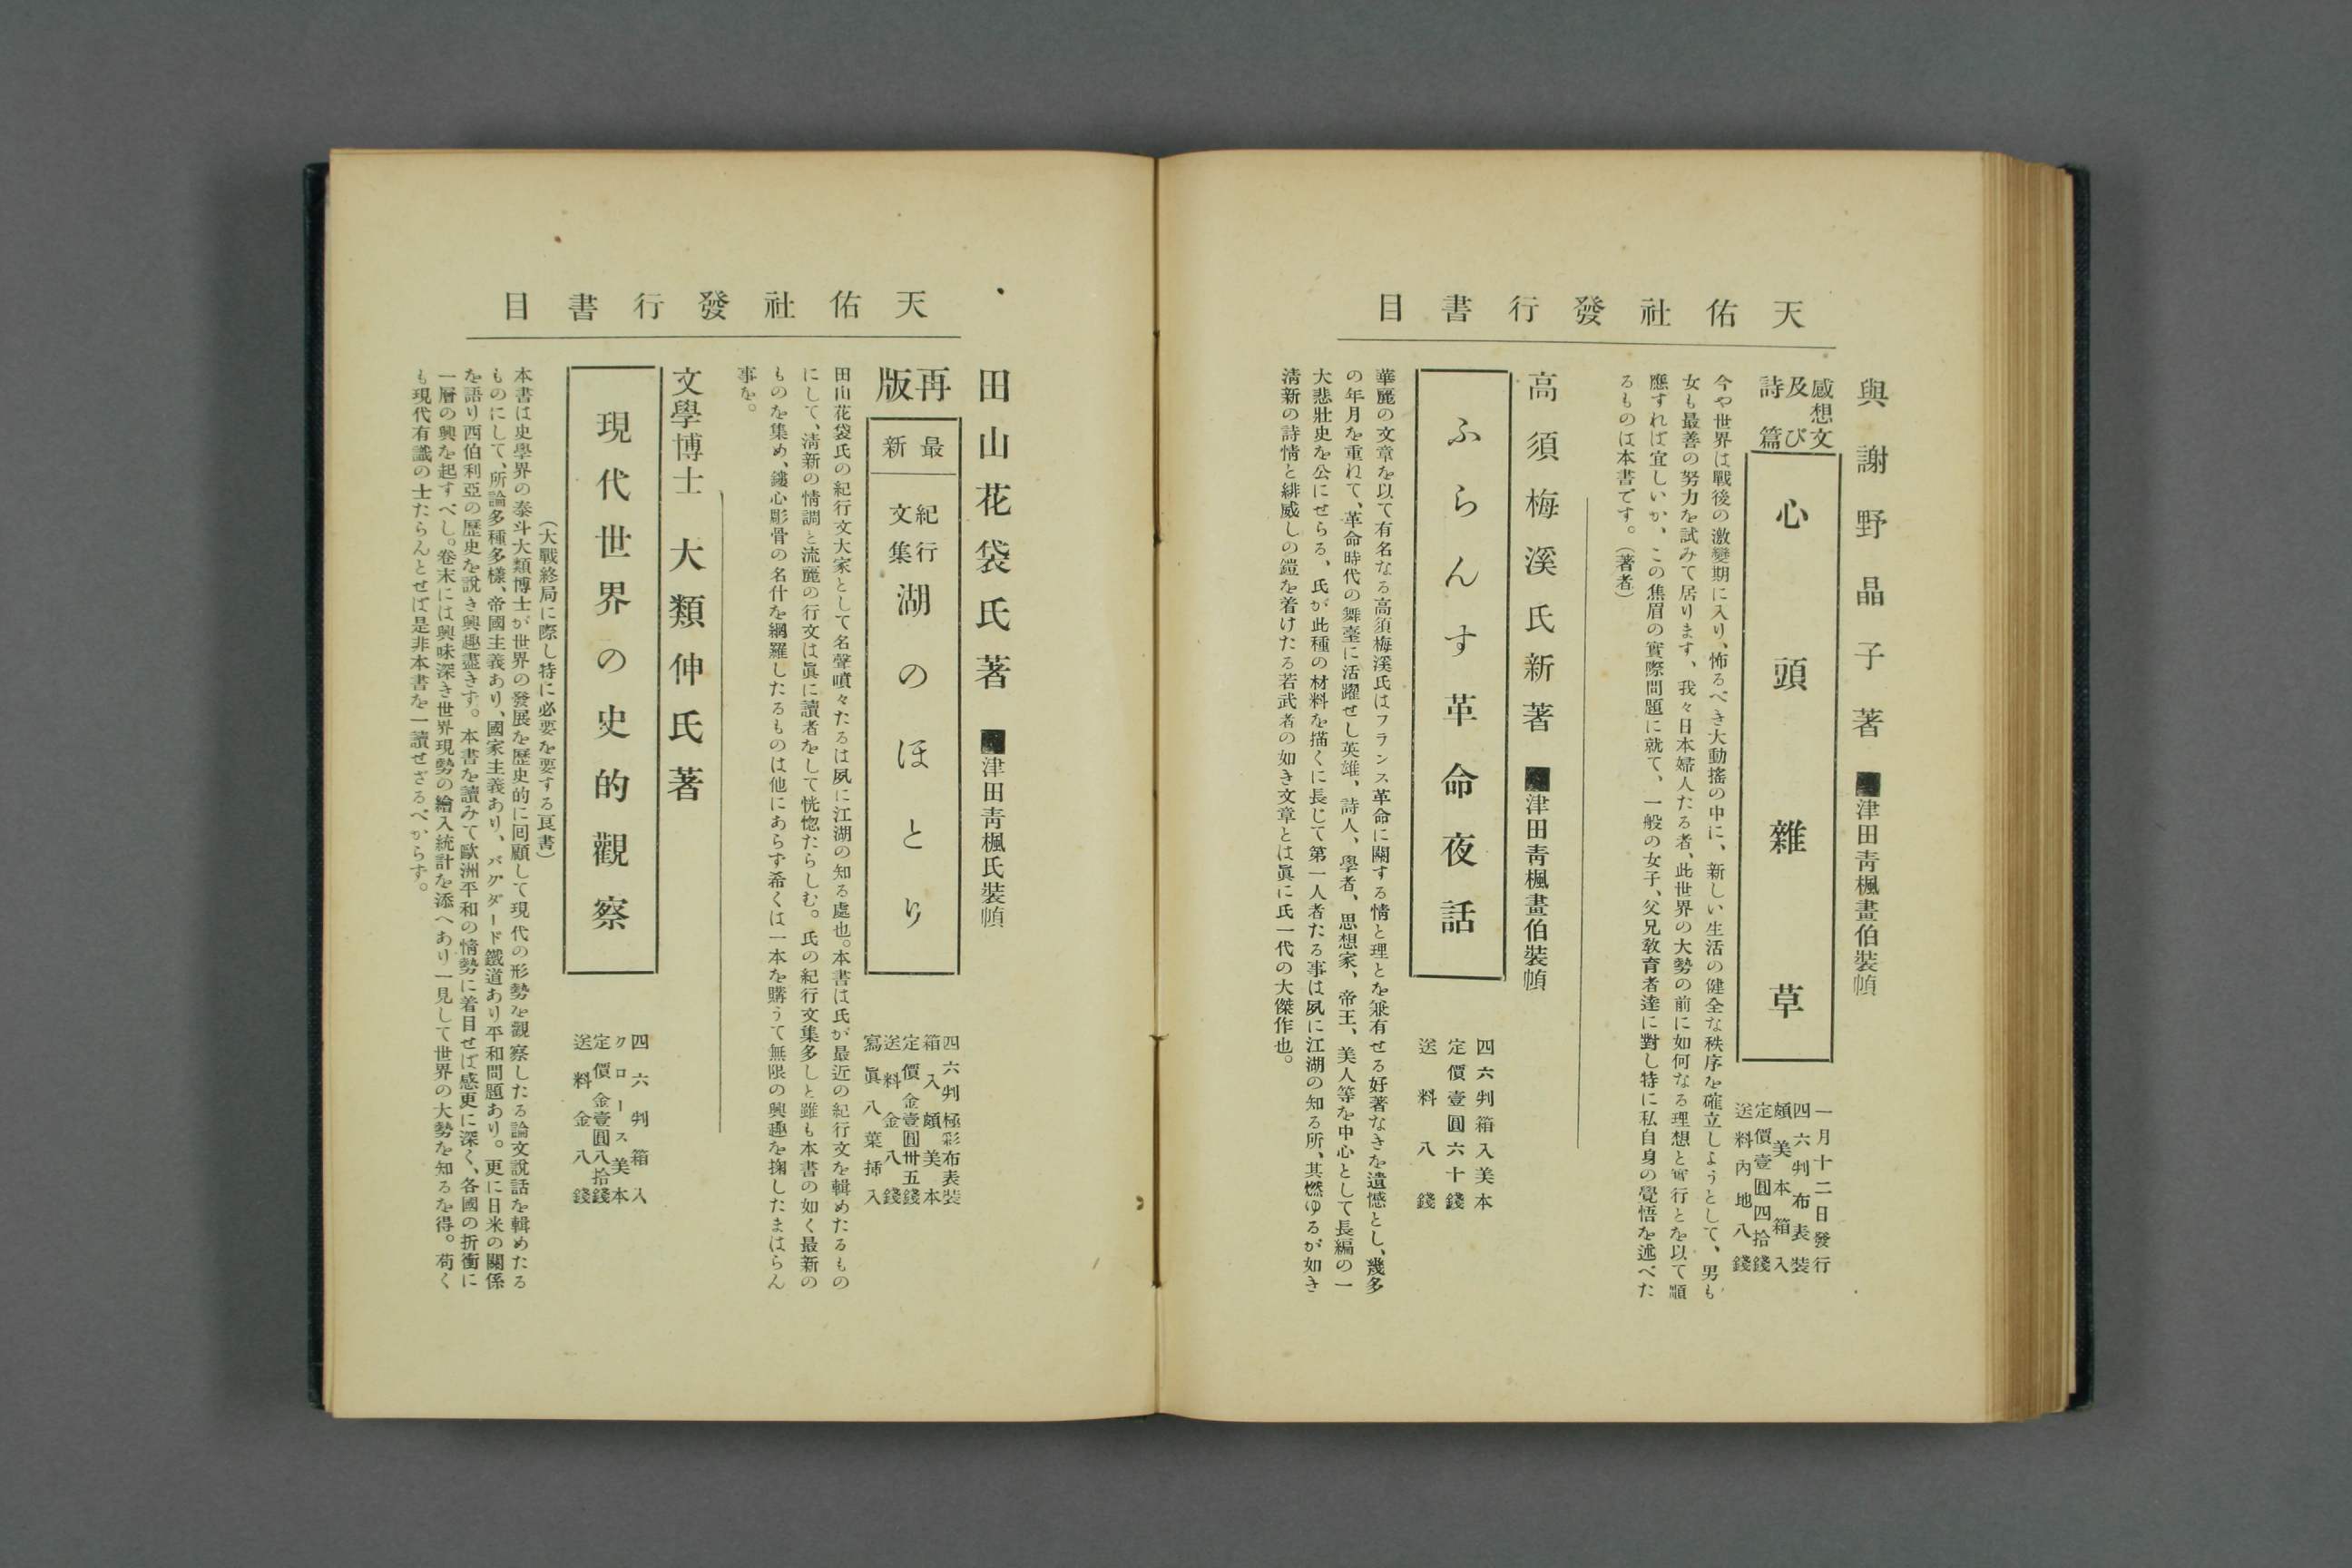 天佑社發行書目
與謝野晶子著 ■津田靑楓畫伯裝幀
感想文
及び
詩篇
心頭雜草
一月十二日發行
四六判布表裝
頗美本箱入
定價壹圓四拾錢
送料內地八錢
今や世界は戰後の激變期に入り、怖るべき大動搖の中に、新しい生活の健全な秩序を確立しようとして、男も
女も最善の努力を試みて居ります、我々日本婦人たる者、此世界の大勢の前に如何なる理想と實行とを以て順
應すれば宜しいか、この焦眉の實際問題に就て、一般の女子、父兄敎育者達に對し特に私自身の覺悟を述べた
るものは本書です。（著者）
高須梅溪氏新著 ■津田靑楓畫伯裝幀
ふらんす革命夜話
四六判箱入美本
定價壹圓六十錢
送料八錢
華麗の文章を以て有名なる高須梅溪氏はフランス革命に關する情と理とを兼有せる好著なきを遺憾とし、幾多
の年月を重ねて、革命時代の舞臺に活躍せし英雄、詩人、學者、思想家、帝王、美人等を中心として長編の一
大悲壯史を公にせらる、氏が此種の材料を描くに長じて第一人者たる事は夙に江湖の知る所、其燃ゆるが如き
淸新の詩情と緋威しの鎧を着けたる若武者の如き文章とは眞に氏一代の大傑作也。
天佑社發行書目
田山花袋氏著 ■津田靑楓氏裝幀
再版
最新
紀行
文集
湖のほとり
四六判極彩布表裝
箱入頗美本
定價金壹圓卅五錢
送料金八錢
寫眞八葉揷入
田山花袋氏の紀行文大家として名聲嘖々たるは夙に江湖の知る處也。本書は氏が最近の紀行文を輯めたるもの
にして、淸新の情調と流麗の行文は眞に讀者をして恍惚たらしむ。氏の紀行文集多しと雖も本書の如く最新の
ものを集め、鏤心彫骨の名什を網羅したるものは他にあらず希くは一本を購うて無限の興趣を掬したまはらん
事を。
文學博士 大類伸氏著
現代世界の史的觀察
四六判箱入
クロース美本
定價金壹圓八拾錢
送料金八錢
（大戰終局に際し特に必要を要する良書）
本書は史學界の泰斗大類博士が世界の發展を歷史的に回顧して現代の形勢を觀察したる論文說話を輯めたる
ものにして、所論多種多樣、帝國主義あり、國家主義あり、バグダード鐵道あり平和問題あり。更に日米の關係
を語り西伯利亞の歷史を說き興趣盡きず。本書を讀みて歐洲平和の情勢に着目せば感更に深く、各國の折衝に
一層の興を起すべし。卷末には興味深き世界現勢の繪入統計を添へあり一見して世界の大勢を知るを得。苟く
も現代有識の士たらんとせば是非本書を一讀せざるべからず。